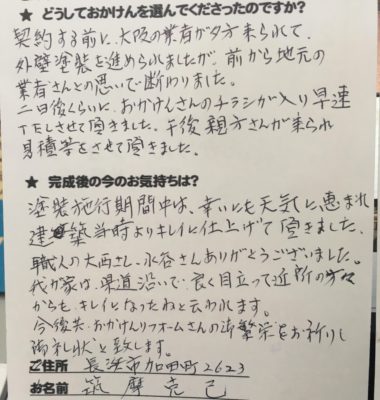 ★ どうしておかけんを選んでくださったのですか?
契約する前に、大阪の業者が夕方来られて、
外壁塗装を進められましたが、前から地元の
業者さんとの思いで断わりました。
二日後くらいに、おかけんさんのチラシが入り早速
TELさせて頂きました。午後親方さんが来られ
見積等をさせて頂きました。
★ 完成後の今のお気持ちは?
塗装施行期間中は、幸いにも天気に恵まれ
建築当時よりキレイに仕上げて頂きました。
職人の大西さん、水谷さんありがとうございました。
我が家は、県道沿いで、良く目立って近所の方々
からも、キレイになったねと云われます。
今後共、おかけんリフォームさんの御繁栄をお祈りし
御礼状と致します。
ご住所 長浜市加田町2623
お名前 筑摩克己